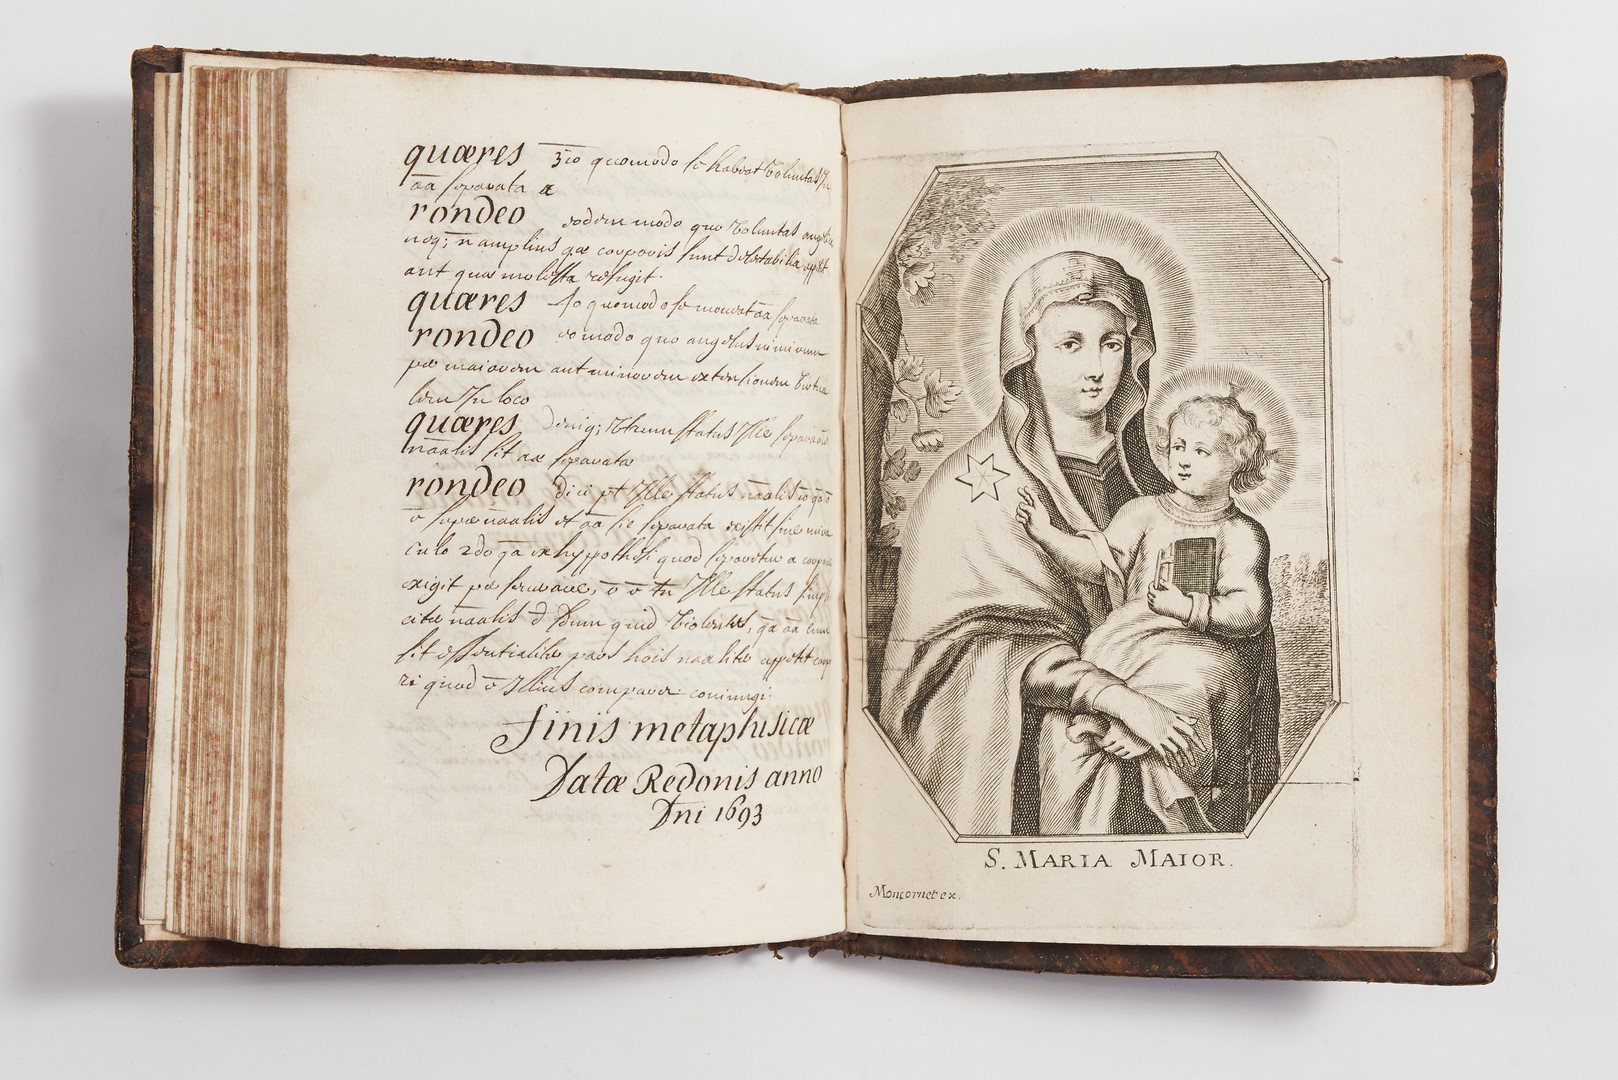 quæres 3io quomodo se habeat voluntas in
aa separata a
rondeo eodem modo quo voluntas angelica
neq; n amplius quæ corporis sunt delectabilia appetit
aut quæ molesta refugit.
quæres 4o quomodo se moveat aa separata
rondeo eo modo quo angelus nimirum
per maiorem aut minorem extensionem
lem in loco
quæres deniq; utrum status ille separaonis
naalis sit aæ separatæ
rondeo dici pt ille status naalis io qa e
o supernaalis et aa sic separata existit sine mira
culo 2do qa ex hyppothesi quod separetur a corpore
exigit perseverare, o o tn ille status simp
citer naalis d dum quid violentus, qa aa cum
sit essentialiter pars hois naaliter appetit corpo
ri quod o illius comparr coniungi
finis metaphisicæ
Datæ Redonis anno
Dni 1693
S. MARIA MAIOR.
Moncornet ex.